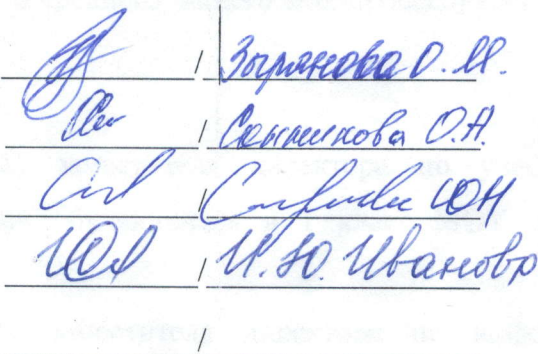 / Зырянова О.М.
/ Санникова О.А.
/ ЮН
/ И.Ю. Иванова